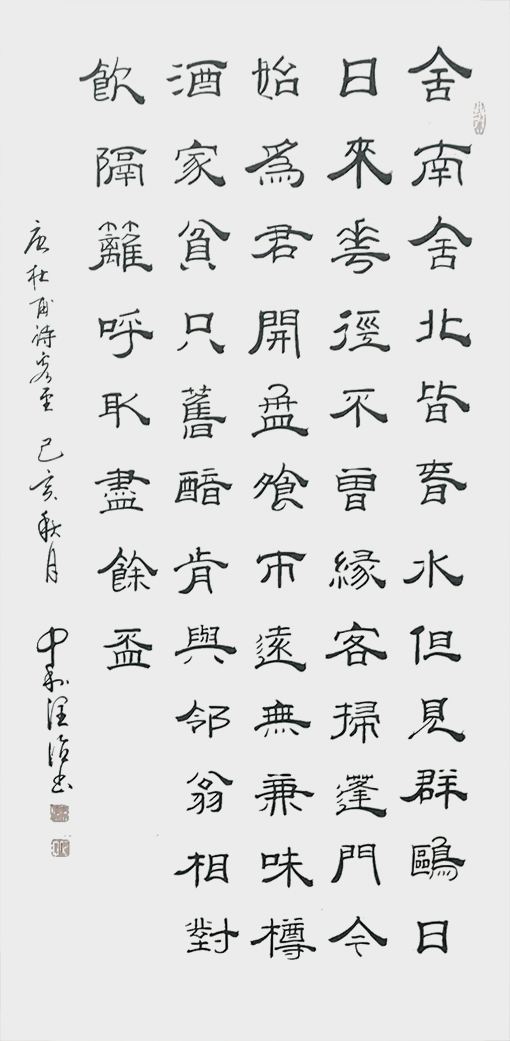 舍南舍北皆春水但見群鷗日
日來華徑不曾緣客掃蓬門今
始爲君開盤飧市遠無兼味樽
酒家貧只舊醅肯與邻翁相對
飲隔籬呼取盡餘盃
唐杜甫詩客至 己亥秋月 中和